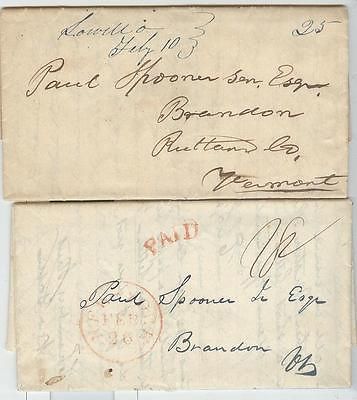 Lowell o
Feby 10
25
Paul Spooner sen. Esqr.
Brandon
Rutland Co.
Vermont
PAID
FEB
26
Paul Spooner Jr Esqr
Brandon Vt